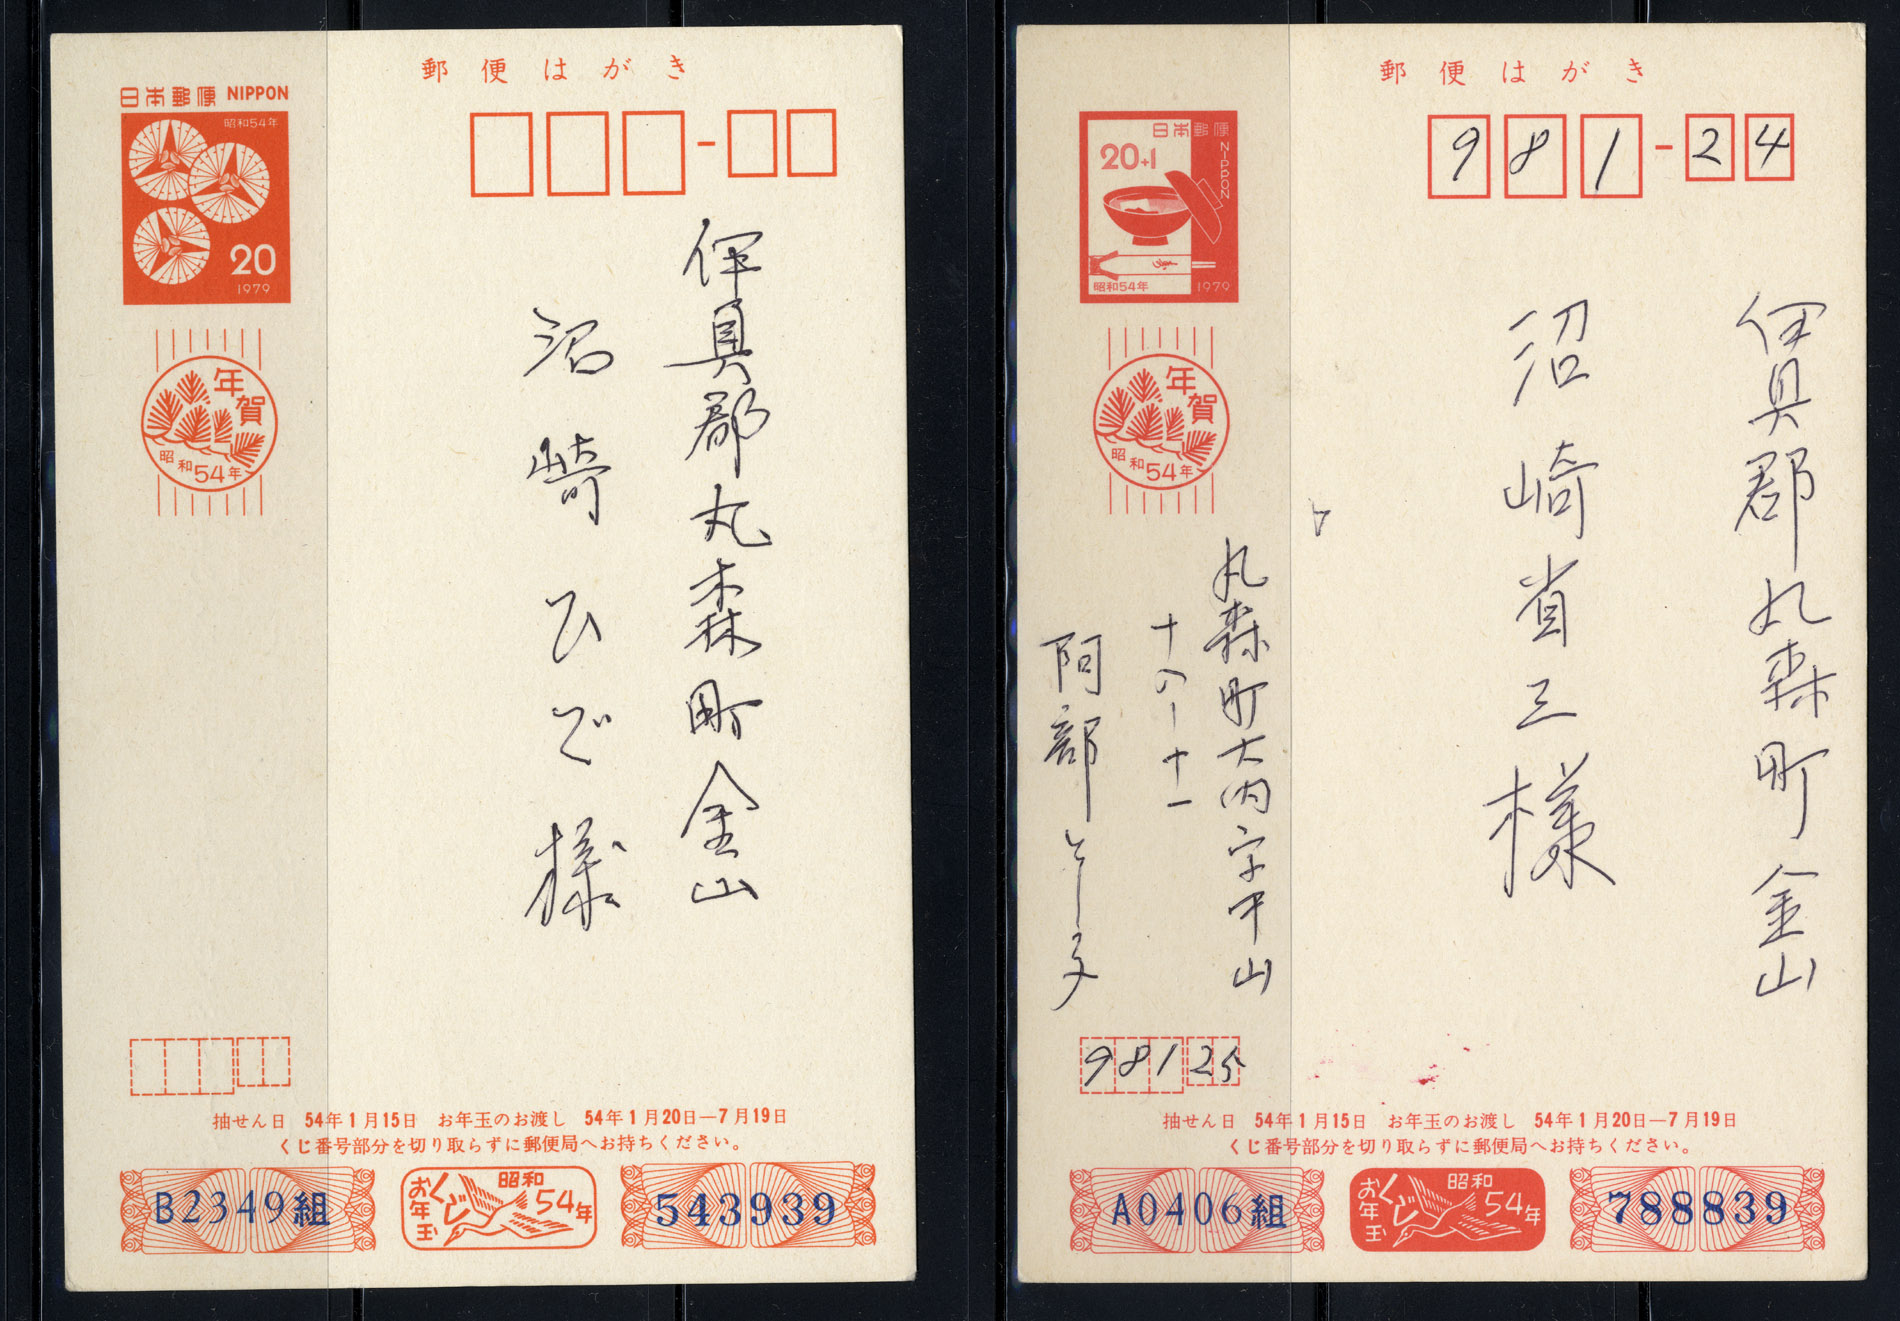 郵便はがき
日本郵便 NIPPON
昭和54年
20
1979
年賀
昭和54年
伊具郡丸森町金山
沼崎ひで様
抽せん日 54年1月15日 お年玉のお渡し 54年1月20日—7月19日
くじ番号部分を切り取らずに郵便局へお持ちください。
B2349組
お年玉くじ
昭和54年
543939
郵便はがき
日本郵便
NIPPON
20+1
寿
昭和54年 1979
981-24
年賀
昭和54年
伊具郡丸森町金山
沼崎省三様
丸森町大内字平山
十八の一十一
阿部とし子
98125
抽せん日 54年1月15日 お年玉のお渡し 54年1月20日—7月19日
くじ番号部分を切り取らずに郵便局へお持ちください。
A0406組
お年玉くじ
昭和54年
788839